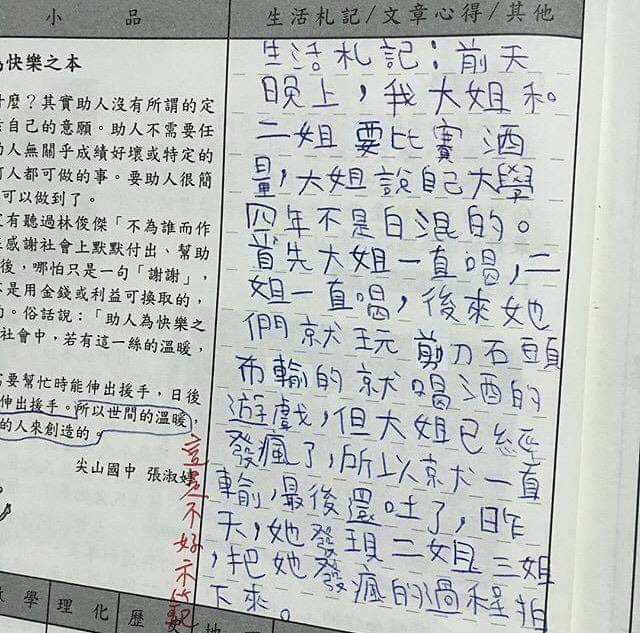 小品
生活札記/文章心得/其他
快樂之本
什麼？其實助人沒有所謂的定
自己的意願。助人不需要任
人無關乎成績好壞或特定的
人都可做的事。要助人很簡
可以做到了。
有聽過林俊傑「不為誰而作
感謝社會上默默付出、幫助
後，哪怕只是一句「謝謝」，
是用金錢或利益可換取的，
。俗話說：「助人為快樂之
社會中，若有這一絲的溫暖，
需要幫忙時能伸出援手，日後
伸出援手。所以世間的溫暖，
的人來創造的。
尖山國中 張淑
生活札記：前天
晚上，我大姐和
二姐要比賽酒
量，大姐說自己大學
四年不是白混的。
首先大姐一直喝，二
姐一直喝，後來她
們就玩剪刀石頭
布輸的就喝酒的
遊戲，但大姐已經
發瘋了，所以就一直
輸，最後還吐了，昨
天，她發現二姐三姐
，把她發瘋的過程拍
下來。
這是不好示
學 理化 歷 地